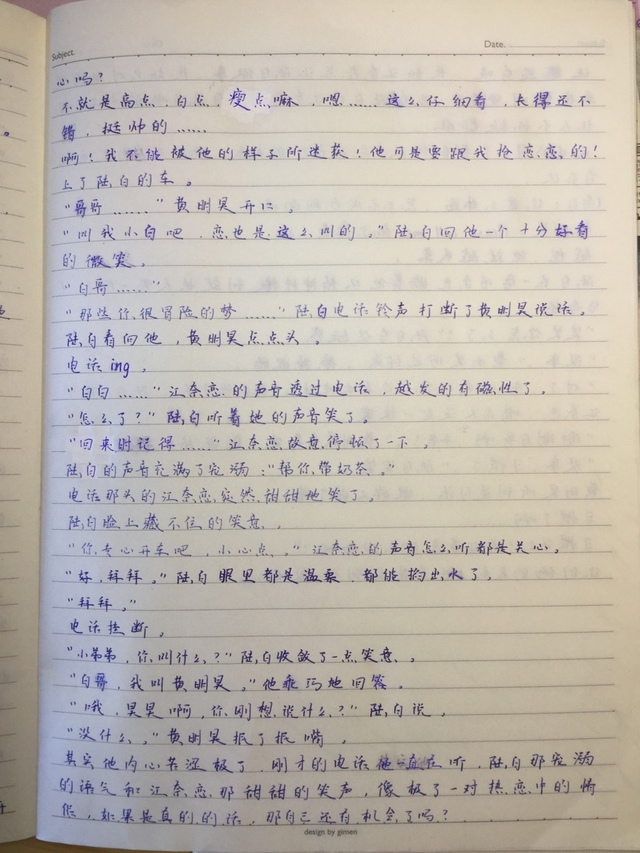 Subject.
Date.
心吗？
不就是高点，白点，瘦点嘛，嗯……这么仔细看，长得还不
错，挺帅的……
啊！我不能被他的样子所迷获！他可是要跟我抢恋恋的！
上了陆白的车。
“哥哥……”黄明昊开口。
“叫我小白吧，恋也是这么叫的。”陆白回他一个十分好看
的微笑。
“白哥……”
“那些你很冒险的梦……”陆白电话铃声打断了黄明昊说话。
陆白看向他，黄明昊点点头。
电话ing。
“白白……”江奈恋的声音透过电话，越发的有磁性了。
“怎么了？”陆白听着她的声音笑了。
“回来时记得……”江奈恋故意停顿了一下。
陆白的声音充满了宠溺：“帮你带奶茶。”
电话那头的江奈恋突然甜甜地笑了。
陆白脸上藏不住的笑意。
“你专心开车吧，小心点。”江奈恋的声音怎么听都是关心。
“好，拜拜。”陆白眼里都是温柔，都能掐出水了。
“拜拜。”
电话挂断。
“小弟弟，你叫什么？”陆白收敛了一点笑意。
“白哥，我叫黄明昊。”他乖巧地回答。
“哦，昊昊啊，你刚想说什么？”陆白说。
“没什么。”黄明昊抿了抿嘴。
其实他内心苦涩极了，刚才的电话他一直在听，陆白那宠溺
的语气和江奈恋那甜甜的笑声，像极了一对热恋中的情
侣，如果是真的的话，那自己还有机会了吗？
design by gimen